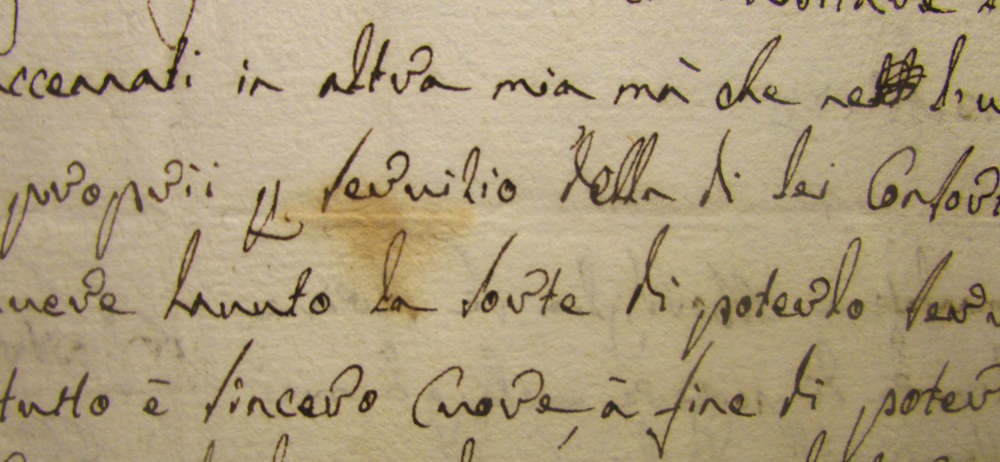 accennati in altra mia mà che ne
proprii p servitio della di lei Consor
havere havuto la sorte di poterlo serv
tutto è sincero Cuore, à fine di poter